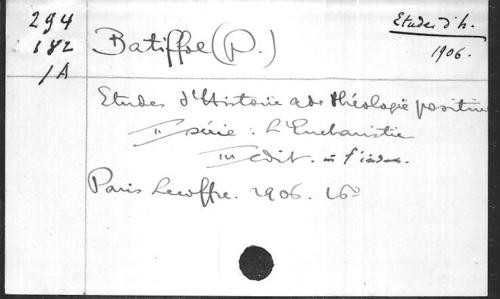 294
182
/A
Batiffol (P.)
Etudes d'h.
1906.
Etudes d'Histoire & de théologie positive
II série : L'Eucharistie
III edit.
Paris Lecoffre. 1906. 16º